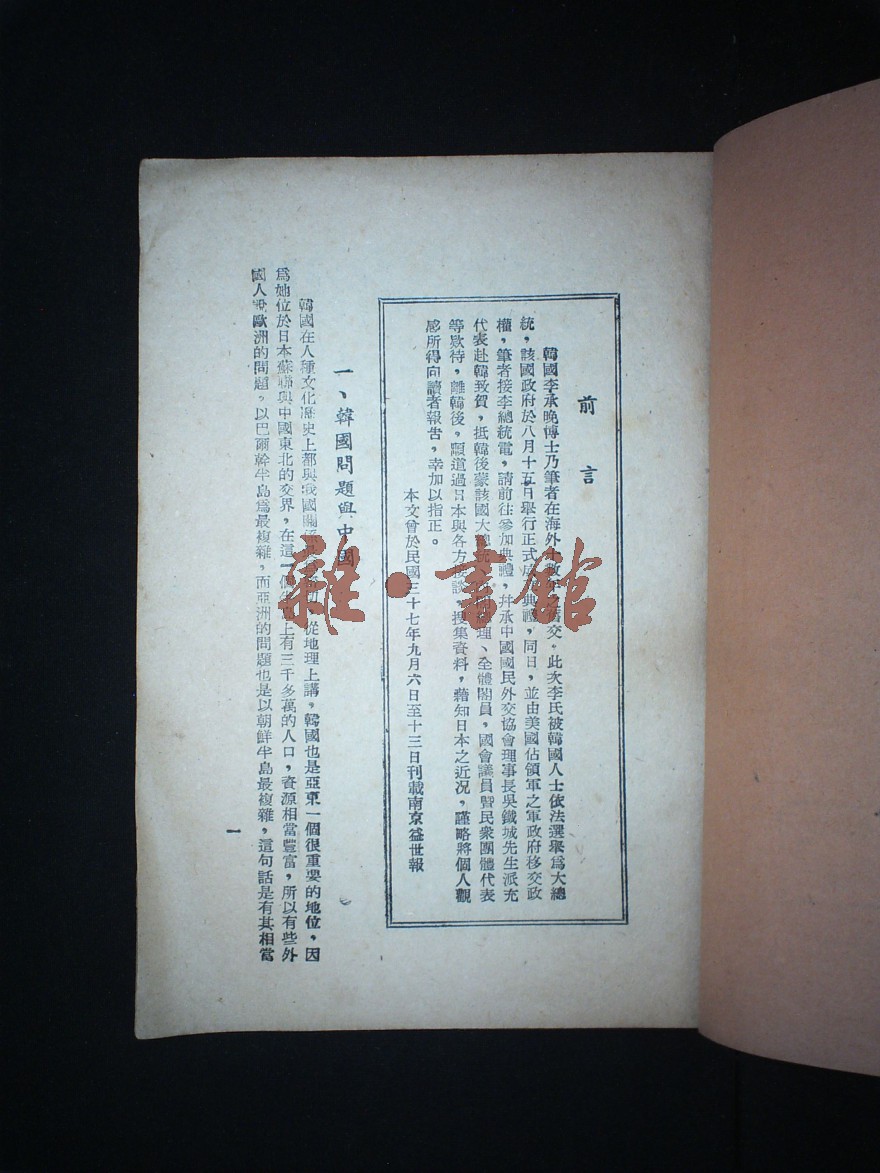 前言
韓國李承晚博士乃筆者在海外十數年之舊交。此次李氏被韓國人士依法選舉爲大總
統，該國政府於八月十五日舉行正式成立典禮，同日，並由美國佔領軍之軍政府移交政
權，筆者接李總統電，請前往參加典禮，幷承中國國民外交協會理事長吳鐵城先生派充
代表赴韓致賀，抵韓後蒙該國大總統、總理、全體閣員，國會議員暨民衆團體代表
等欵待，離韓後，順道過日本與各方接談，搜集資料，藉知日本之近况，謹略將個人觀
感所得向讀者報告，幸加以指正。
本文曾於民國三十七年九月六日至十三日刊載南京益世報
一、韓國問題與中國
韓國在人種文化歷史上都與我國關係，從地理上講，韓國也是亞東一個很重要的地位，因
爲她位於日本蘇聯與中國東北的交界，在這一個上有三千多萬的人口，資源相當豐富，所以有些外
國人說歐洲的問題，以巴爾幹半島爲最複雜，而亞洲的問題也是以朝鮮半島最複雜，這句話是有其相當
一
雜·書館